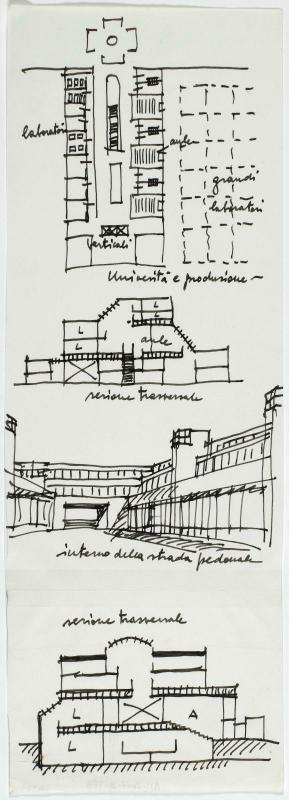 laboratori
aule
grandi
laboratori
verticali
Università e produzione
L
L
L
aule
L
sezione trasversale
interno della strada pedonale
sezione trasversale
L
A
L